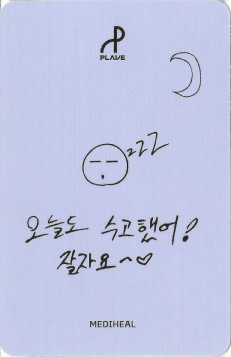 PLAVE
zzz
오늘도 수고했어!
잘자요~♡
MEDIHEAL